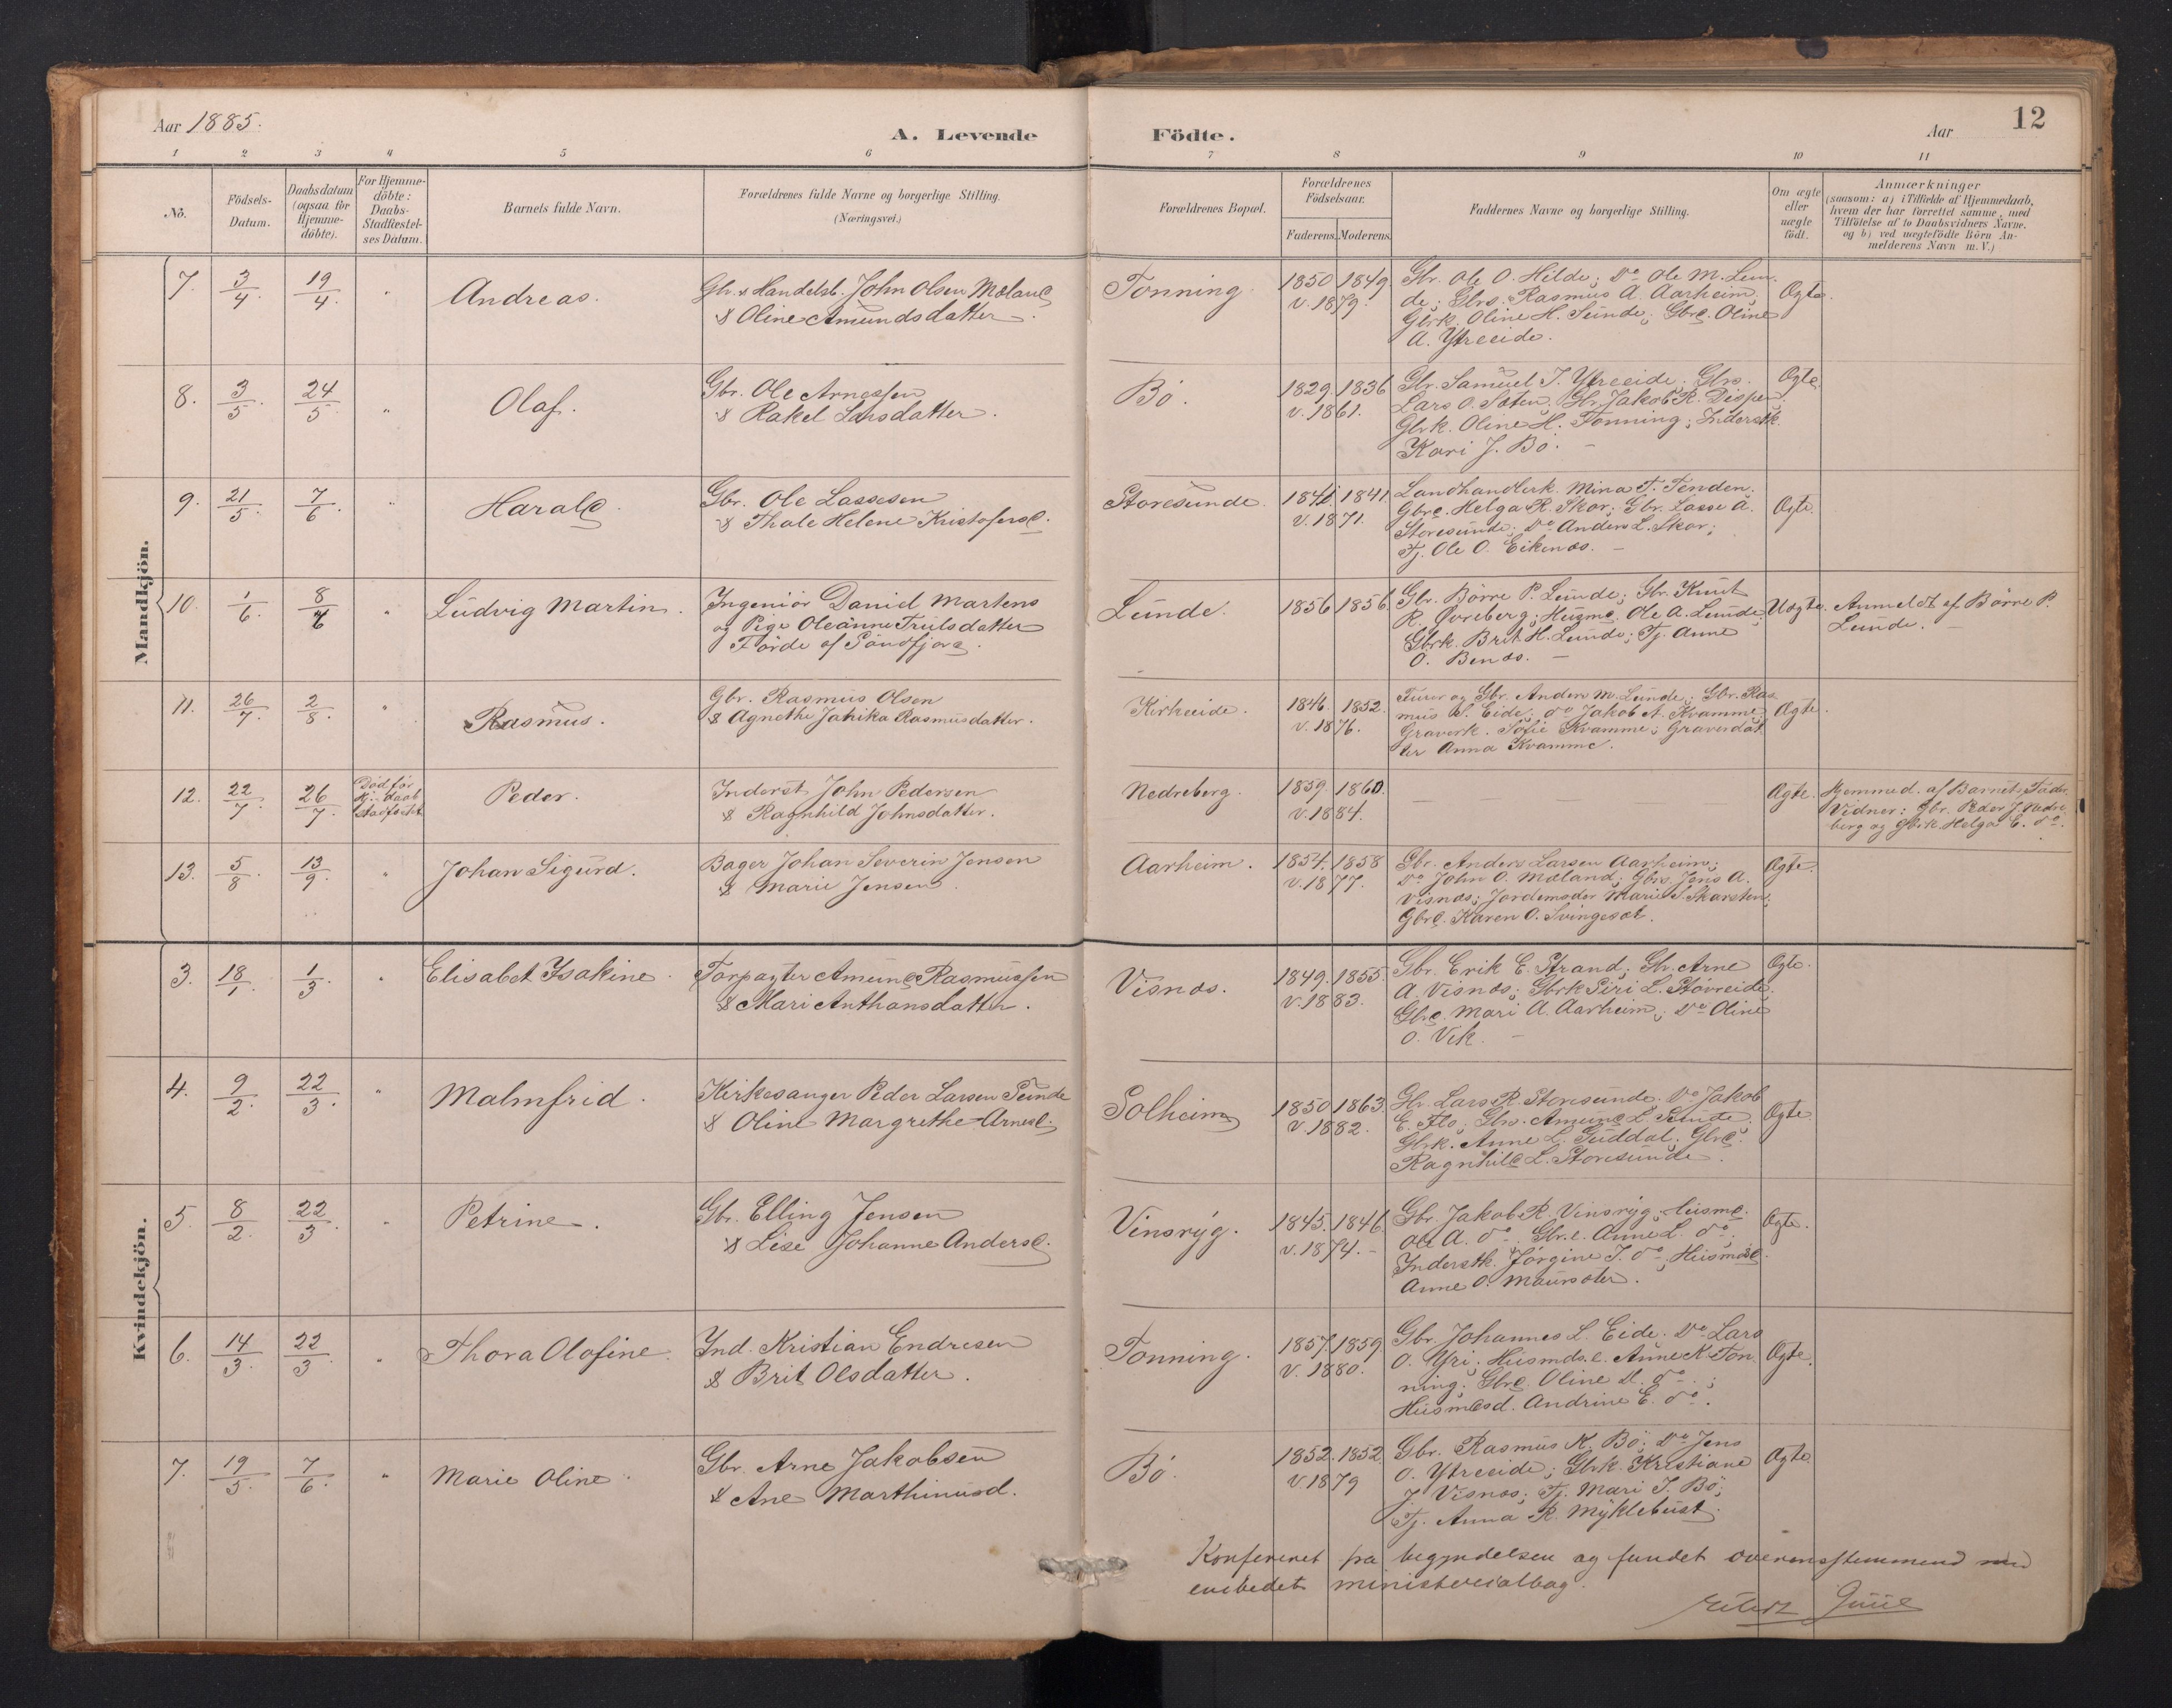 Aar 1885.
A. Levende Födte.
Aar
12
1 2 3 4 5 6 7 8 9 10 11
No.
Födsels-Datum.
Daabsdatum (ogsaa for Hjemme-döbte).
For Hjemme-döbte: Daabs-Stadfæstel-ses Datum.
Barnets fulde Navn.
Forældrenes fulde Navne og borgerlige Stilling.
(Næringsvei.)
Forældrenes Bopæl.
Forældrenes Födselsaar.
Faderens. Moderens.
Faddernes Navne og borgerlige Stilling.
Om ægte eller uægte födt.
Anmærkninger
(saasom: a) i Tilfælde af Hjemmedaab,
hvem der har forrettet samme, med
Tilföielse af to Daabsvidners Navne,
og b) ved uægtefödte Börn An-
melderens Navn m. V.)
Mandkjön.
7. 3/4. 19/4. " Andreas.
Gbr. & Handelsb. John Olsen Mæland
& Oline Amundsdatter.
Tonning. 1850 1849.
v. 1879.
Gbr. Ole O. Hilde; Do Ole M. Lun-
de; Gbrs. Rasmus A. Aarheim;
Gbrk. Oline H. Sunde; Gbrd. Oline
A. Ytreeide.
Ægte.
8. 3/5. 24/5. " Olaf.
Gbr. Ole Arnessen
& Rakel Larsdatter.
Bö. 1829. 1836
v. 1861.
Gbr. Samuel J. Ytreeide; Gbrs.
Lars O. Sæten; Gbr. Jakob R. Dispen;
Gbrk. Oline H. Tonning; Inderstk.
Kari J. Bö. –
Ægte.
9. 21/5. 7/6. " Harald.
Gbr. Ole Lassesen
& Thale Helene Kristofersd.
Storesunde. 1841. 1841.
v. 1871.
Landhandlerk. Mina T. Tenden;
Gbrd. Helga R. Skor; Gbr. Lasse A.
Storesunde; Do Anders L. Skor;
Tj. Ole O. Eikenæs. –
Ægte.
10. 1/6. 8/6 " Ludvig Martin.
Ingeniör Daniel Martens
og Pige Oleanne Trulsdatter
Förde af Söndfjord.
Lunde. 1856 1856.
Gbr. Börre P. Lunde; Gbr. Knut
R. Övreberg; Husmd. Ole A. Lunde;
Gbrk. Brit H. Lunde; Tj. Anne
O. Benæs. –
Uægte.
Anmeldt af Börre P.
Lunde. –
11. 26/7. 2/8. " Rasmus.
Gbr. Rasmus Olsen
& Agnethe Jahika Rasmusdatter.
Kirkeeide. 1846. 1852.
v. 1876.
Furer og Gbr. Anders M. Lunde; Gbr. Ras-
mus S. Eide; do Jakob A. Kvamme;
Graverk. Sofie Kvamme; Graverdat-
ter Anna Kvamme.
Ægte.
12. 22/7. 26/7. Död för
Hj. daab
stadfæstet Peder.
Inderst John Pedersen
& Ragnhild Johnsdatter.
Nedreberg. 1859. 1860.
v. 1884.
— — —
Ægte.
Hjemmed. af Barnets Fader.
Vidner: Gbr. Peder J. Nedre-
berg og Gbrk. Helga E. do.
13. 5/8. 13/9. " Johan Sigurd.
Bager Johan Severin Jensen
& Marie Jensen.
Aarheim. 1854. 1858
v. 1877.
Gbr. Anders Larsen Aarheim;
Do John O. Mæland; Gbrs. Jens A.
Visnæs; Jordemoder Marie S. Skarsten;
Gbrd. Karen O. Svingeset.
Ægte.
Kvindekjön.
3. 18/1. 1/3. " Elisabet Isakine.
Forpagter Amund Rasmussen
& Mari Anthonsdatter.
Visnæs. 1849. 1855.
v. 1883.
Gbr. Erik E. Strand; Gbr. Arne
A. Visnæs; Gbrk Siri L. Stövreide;
Gbrd. Mari A. Aarheim; Do Oline
O. Vik. –
Ægte.
4. 9/2. 22/3. " Malmfrid.
Kirkesanger Peder Larsen Sunde
& Oline Margrethe Arnesd.
Solheim 1850. 1863.
v. 1882.
Gbr. Lars R. Storesunde. Do Jakob
E. Flo; Gbrs. Amund L. Sunde;
Gbrk. Anne L. Guddal; Gbrd.
Ragnhild L. Storesunde.
Ægte.
5. 8/2. 22/3. " Petrine.
Gbr. Elling Jensen
& Lise Johanne Andersd.
Vinsryg. 1845. 1846.
v. 1874. –
Gbr. Jakob R. Vinsryg, Husmd.
Ole A. do. Gbr.d. Anne L. do.
Inderstk. Jörgine J. do; Husmdsd.
Anne O. Maurseter.
Ægte.
6. 14/3. 22/3. " Thora Olofine.
Ind. Kristian Endresen
& Brit Olsdatter.
Tonning. 1857. 1859
v. 1880.
Gbr. Johannes L. Eide. Do Lars
O. Yri; Husmds.d. Anne K. Ton-
ning; Gbrd. Oline M. do;
Husmdsd. Andrine E. do.
Ægte.
7. 19/5. 7/6. " Marie Oline
Gbr. Arne Jakobsen
& Ane Marthinusd.
Bö. 1852. 1852.
v. 1879
Gbr. Rasmus K. Bö; Do Jens
O. Ytreeide; Gbrk. Kristiane
J. Visnæs; Tj. Mari J. Bö;
Tj. Anna R. Myklebust.
Ægte.
Konfereret fra begyndelsen og fundet overensstemmend med
embedets ministerialbog.